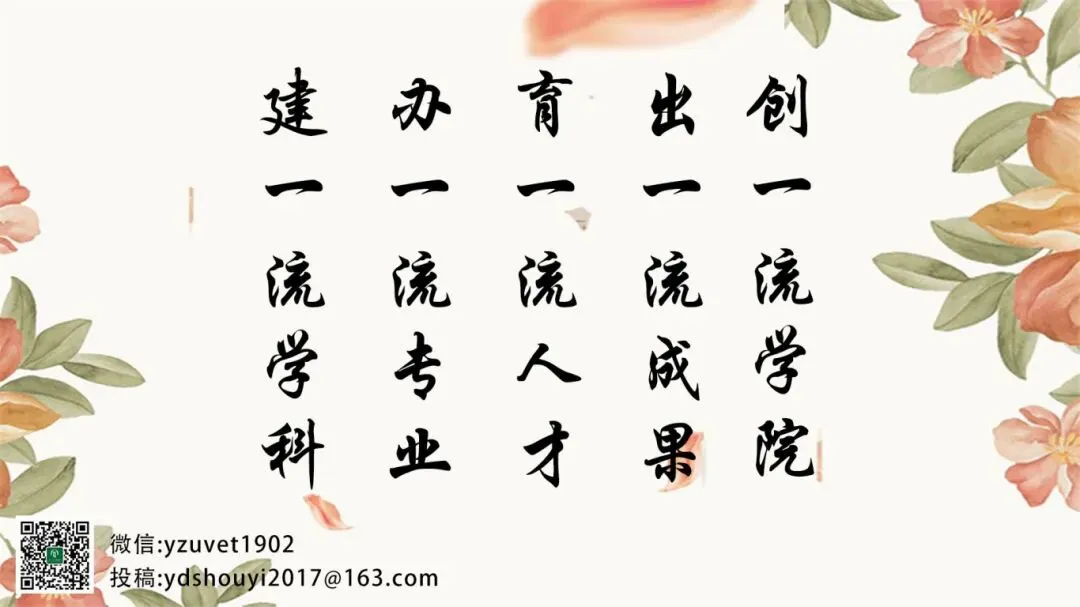 建一流学科
办一流专业
育一流人才
出一流成果
创一流学院
微信:yzuvet1902
投稿:ydshouyi2017@163.com